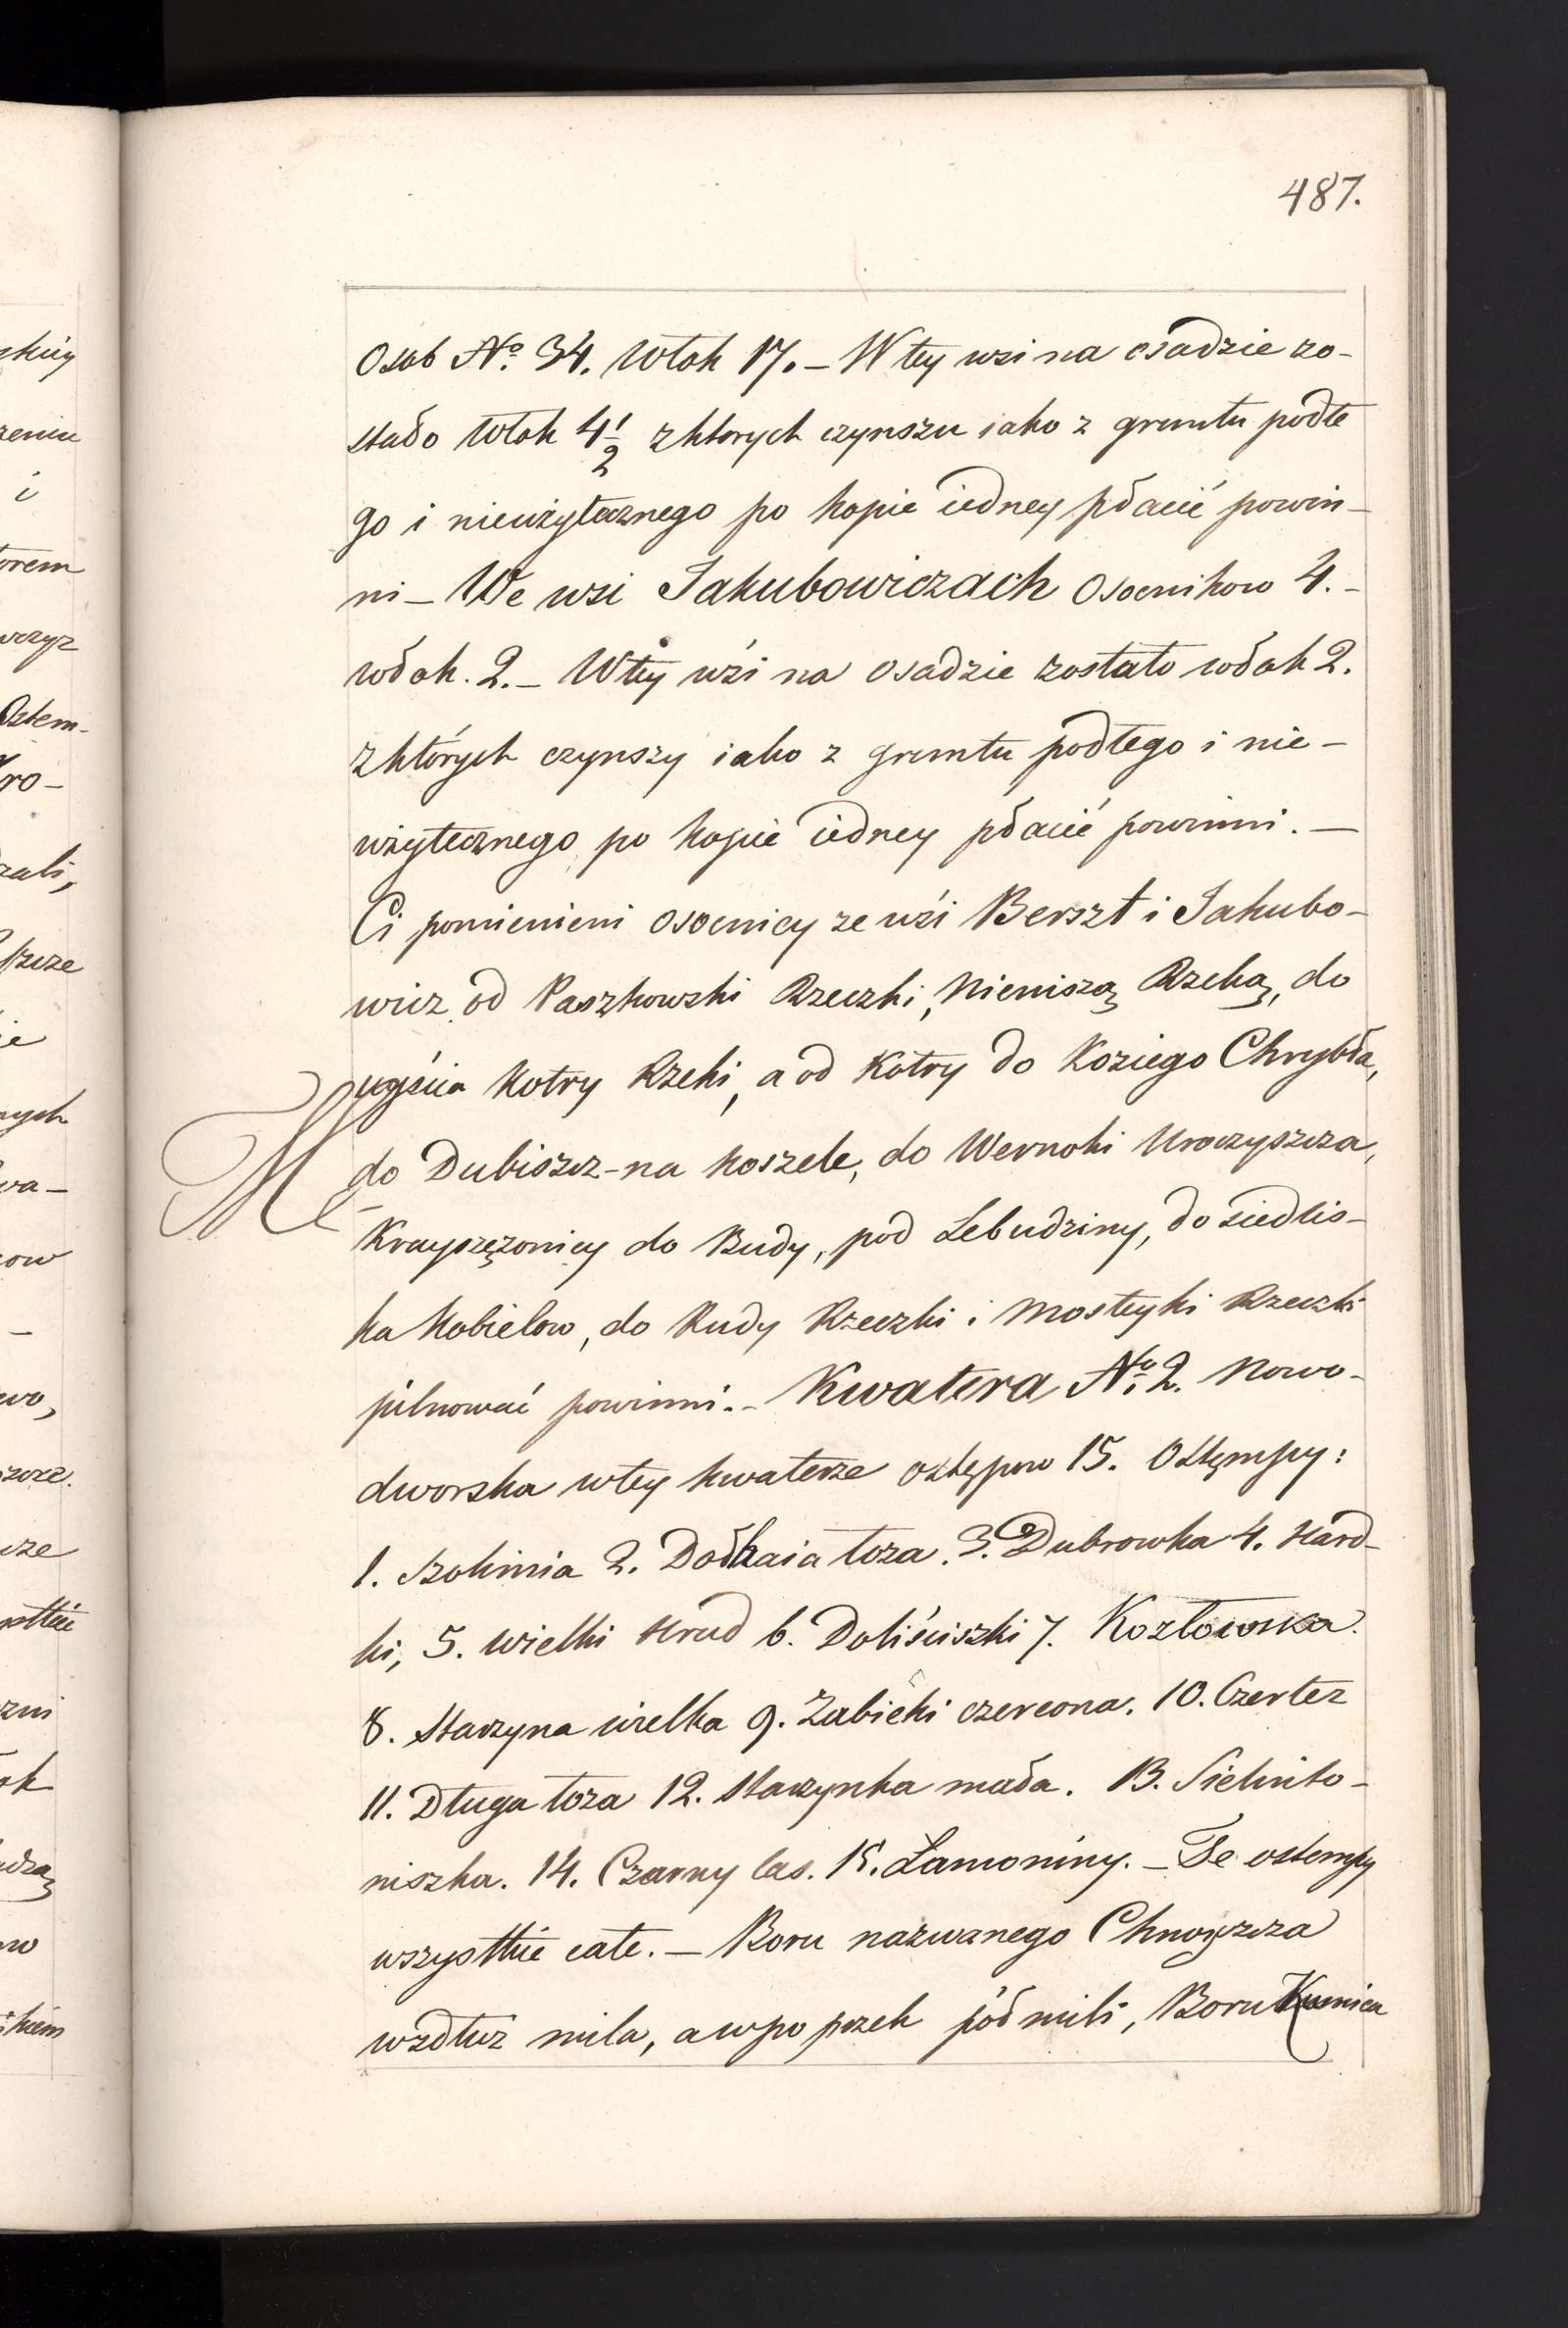 487.
Osob No. 34. Włok 17. – W tey wsi na osadzie zo-
stało Włok 4 1/2 z ktorych czynszu iako z gruntu podłe
go i nieużytecznego po kopie iedney płacić powin-
ni – We wsi Jakubowiczach Osocnikow 4. –
włok. 2. – W tey wśi na osadzie zostało włok 2.
z których czynszy iako z gruntu podłego i nie-
użytecznego po kopie iedney płacić powinni. –
Ci pomienieni osocnicy ze wśi Berszt i Jakubo-
wicz od Paszkowski Rzeczki, Nieniszą Rzeką, do
uyścia Kotry Rzeki, a od Kotry do Koziego Chrybła,
do Dubiszcz-na Koszele, do Wernoki Uroczyszcza,
Krayszczonicy do Budy, pod Lebudziny, do siedlis-
ka Kobielow, do Rudy Rzeczki i Mosteyki Rzeczki
pilnować powinni. – Kwatera No. 2. Nowo-
dworska w tey kwaterze ostępow 15. Ostęmpy:
1. Szolinia 2. Dołhaia łoza. 3. Dubrowka 4. Hard-
ki, 5. wielki Hrud 6. Doliściszki 7. Kozłowska.
8. Staczyna wielka 9. Żabicki czereona. 10. Czertez
11. Długa łoza 12. Staczynka mała. 13. Sielwito-
niszka. 14. Czarny las. 15. Łamoniny. – Te ostempy
wszystkie całe. – Boru nazwanego Chnoyszcza
wzdłuz mila, a w po przek pół mili, Boru Kunica